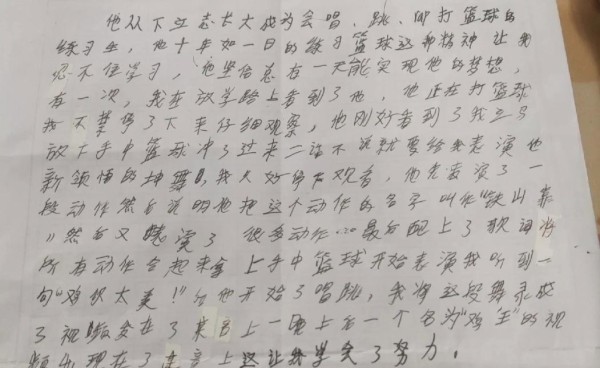 他从下立志长大成为会唱、跳、脚打篮球的
练习生，他十年如一日的练习篮球这种精神让我
忍不住学习，他坚信总有一天能实现他的梦想，
有一次，我在放学路上看到了他，他正在打篮球
我不禁停了下来仔细观察，他刚好看到了我立马
放下手中篮球冲了过来二话不说就要给我表演他
新领悟的坤舞，我只好停下观看，他先表演了一
段动作然后说明他把这个动作的名字叫作"铁山靠
"然后又表演了很多动作，最后配上了歌词将
所有动作合起来拿上手中篮球开始表演我听到一
句"鸡你太美！"后他开始了唱跳，我将这段舞录成
了视频发在了某音上一晚上后一个名为"鸡王"的视
频出现在了上这让我学会了努力。